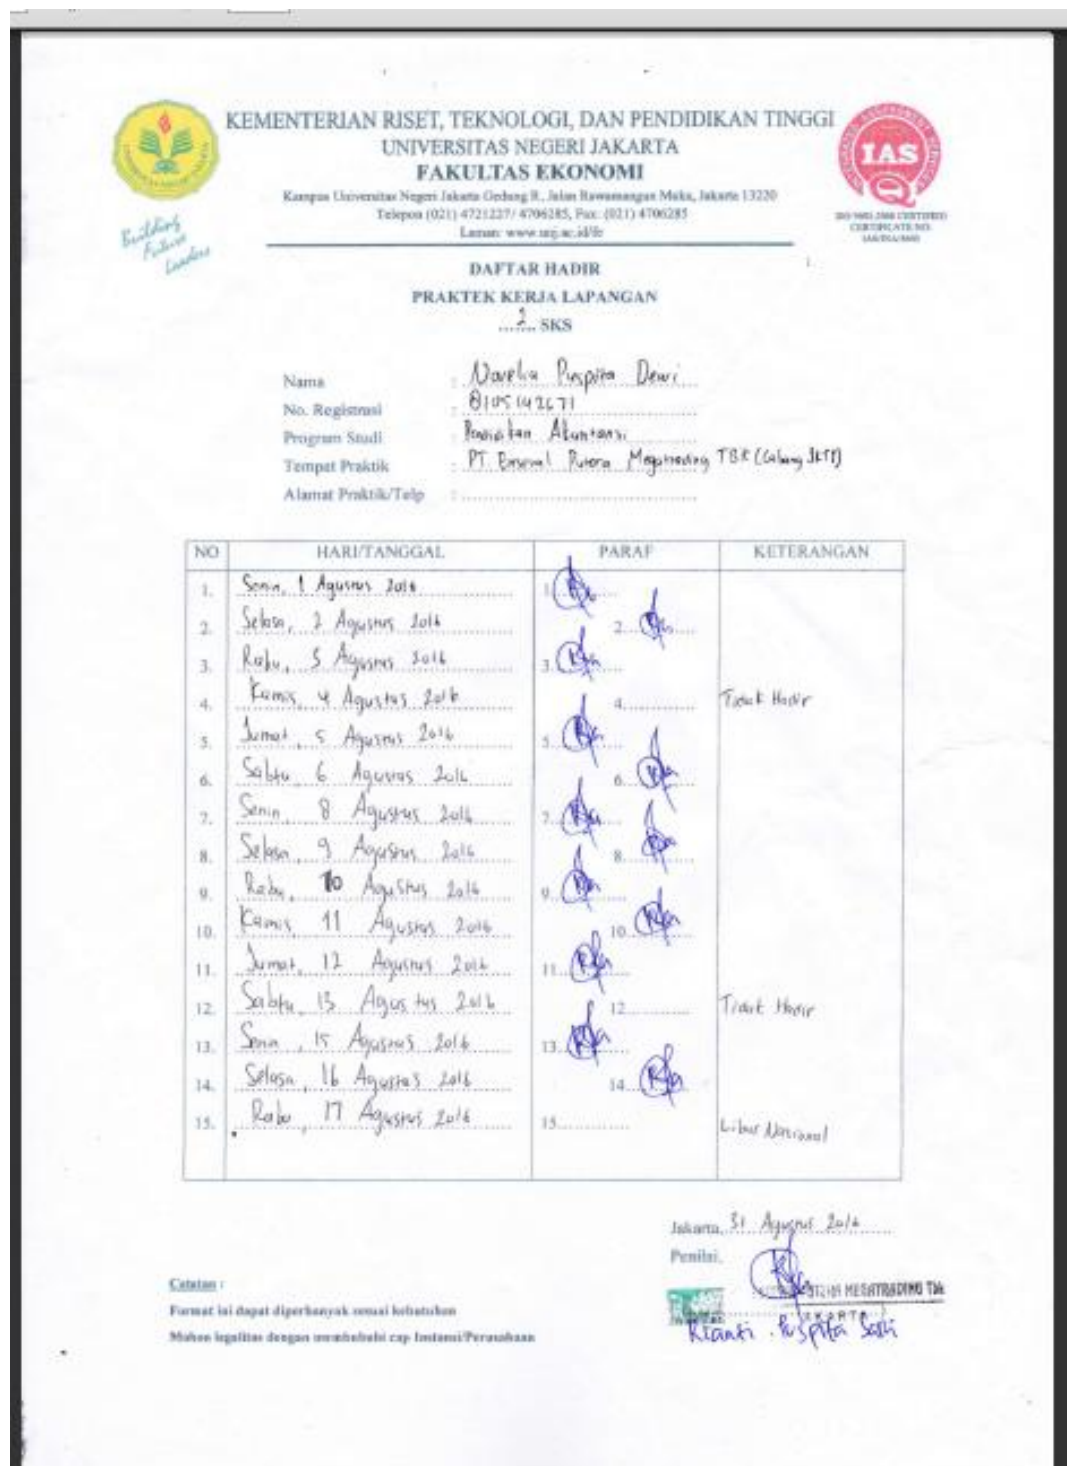 KEMENTERIAN RISET, TEKNOLOGI, DAN PENDIDIKAN TINGGI
UNIVERSITAS NEGERI JAKARTA
FAKULTAS EKONOMI
Kampus Universitas Negeri Jakarta Gedung R, Jalan Rawamangun Muka, Jakarta 13220
Telepon (021) 4721227/ 4706285, Fax: (021) 4706285
Laman: www.unj.ac.id/fe
IAS
Building
Future
Leaders
DAFTAR HADIR
PRAKTEK KERJA LAPANGAN
2 SKS
Nama : Novelia Puspita Dewi
No. Registrasi : 8105142671
Program Studi : Pendidikan Akuntansi
Tempat Praktik : PT. Putera Megatrading TBK (Cabang JKT1)
Alamat Praktik/Telp :
NO HARI/TANGGAL PARAF KETERANGAN
1. Senin, 1 Agustus 2016 1.
2. Selasa, 2 Agustus 2016 2.
3. Rabu, 3 Agustus 2016 3.
4. Kamis, 4 Agustus 2016 4. Tidak Hadir
5. Jumat, 5 Agustus 2016 5.
6. Sabtu, 6 Agustus 2016 6.
7. Senin, 8 Agustus 2016 7.
8. Selasa, 9 Agustus 2016 8.
9. Rabu, 10 Agustus 2016 9.
10. Kamis, 11 Agustus 2016 10.
11. Jumat, 12 Agustus 2016 11.
12. Sabtu, 13 Agustus 2016 12. Tidak Hadir
13. Senin, 15 Agustus 2016 13.
14. Selasa, 16 Agustus 2016 14.
15. Rabu, 17 Agustus 2016 15. Libur Nasional
Jakarta, 31 Agustus 2016
Penilai,
MEGATRADING Tbk
JAKARTA
Rianti Puspita Sari
Catatan :
Format ini dapat diperbanyak sesuai kebutuhan
Mohon legalitas dengan membubuhi cap Instansi/Perusahaan